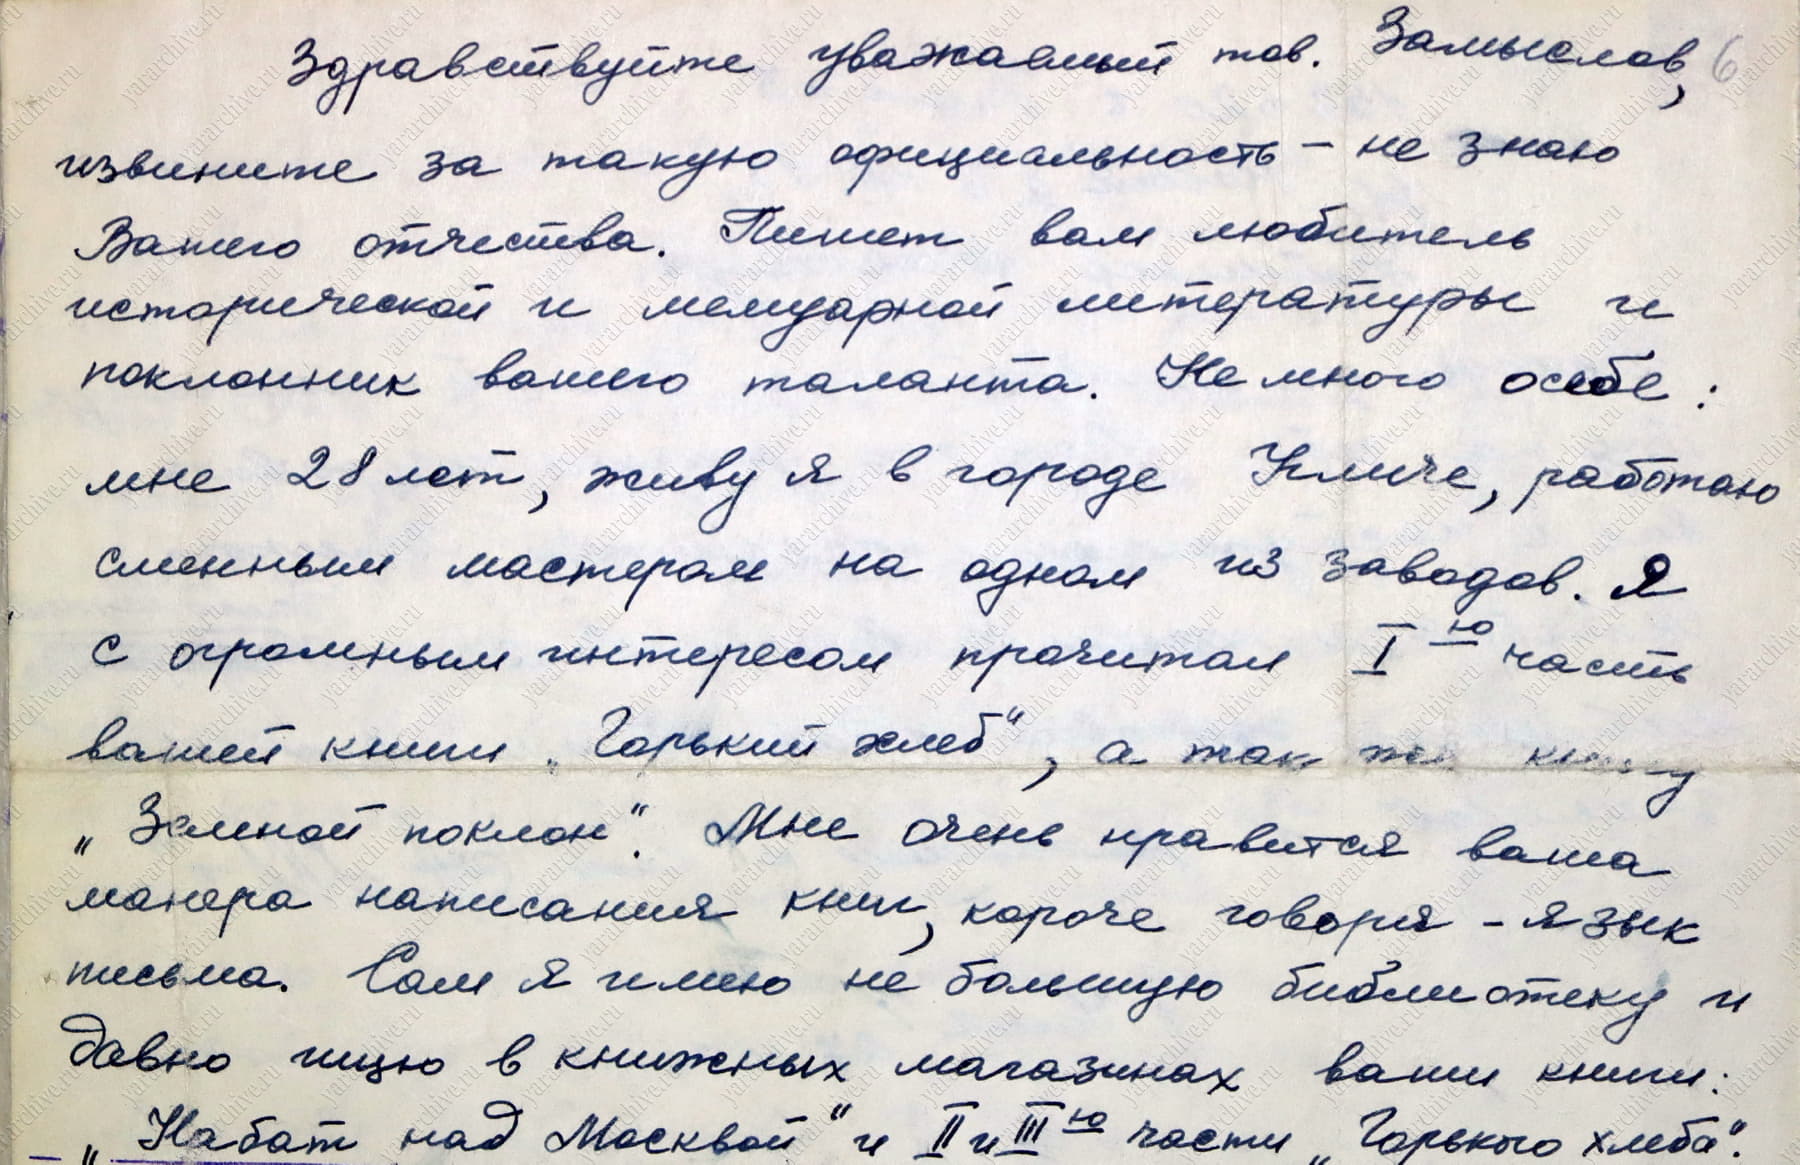 Здравствуйте уважаемый тов. Замыслов, 6
извините за такую официальность – не знаю
Вашего отчества. Пишет вам любитель
исторической и мемуарной литературы и
поклонник вашего таланта. Немного о себе:
мне 28 лет, живу я в городе Угличе, работаю
сменным мастером на одном из заводов. Я
с огромным интересом прочитал I ю часть
вашей книги „Горький хлеб“, а так же книгу
„Земной поклон“. Мне очень нравится ваша
манера написания книг, короче говоря – язык
письма. Сам я имею не большую библиотеку и
давно ищю в книжных магазинах ваши книги:
„Набат над Москвой“ и II и III ю части „Горького хлеба“.
yararchive.ru